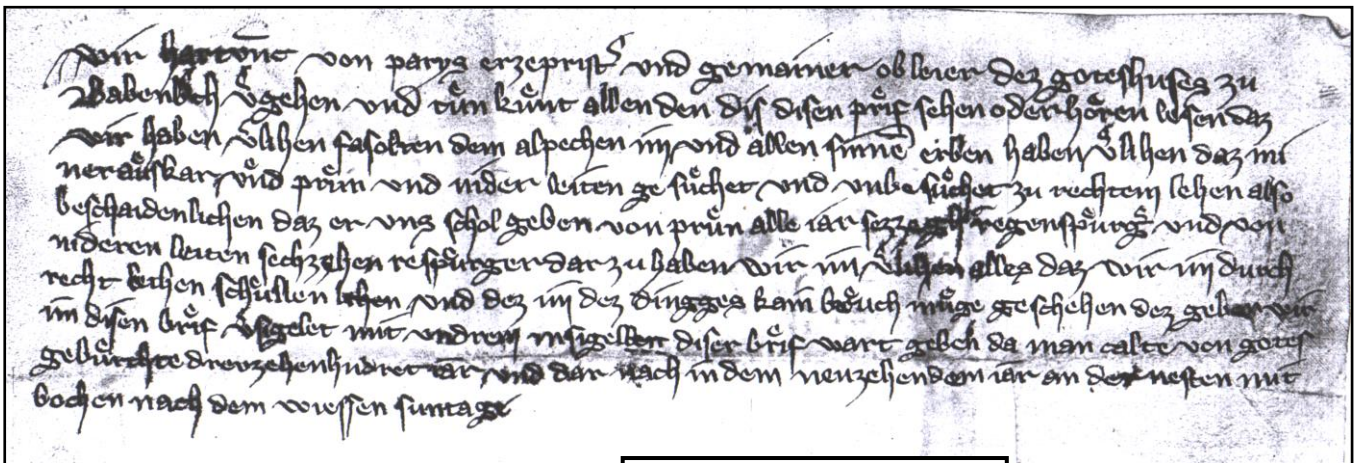 wir hartunc von parys erzepristˢ vnd gemainer obleier dez goteshuses zu
Babenbˢch vˢgehen vnd tuͦn kuͦnt allen den dis disen prͤif sehen oder hoͤren lesen daz
wir haben vˢlihen fasolten dem alpechen im vnd allen sinnē erben haben vˢlihen daz in
vnd pruͤn vnd nider leiten ge suͦchet vnd vnbe suͦchet zu rechtem lehen also
beschaidenlichen daz er vns schol geben von pruͤn alle iar regenspuͦrgˢ vnd von
nideren leiten sechzehen respuͦrger dar zu haben wir im vˢlihen alles daz wir im durch
recht lichen schuͤllen lihen vnd dez im dez dingges kain bruͦch muͤge geschehen dez geben wir
im disen brͤif vˢsigelet mit vndrem insigel diser brͤif wart geben da man calte von gotes
gebuͤrte dreuzehenhundret iar vnd dar nach in dem neuzehendem iar an der nesten mit
bochen nach dem wiessen suntage